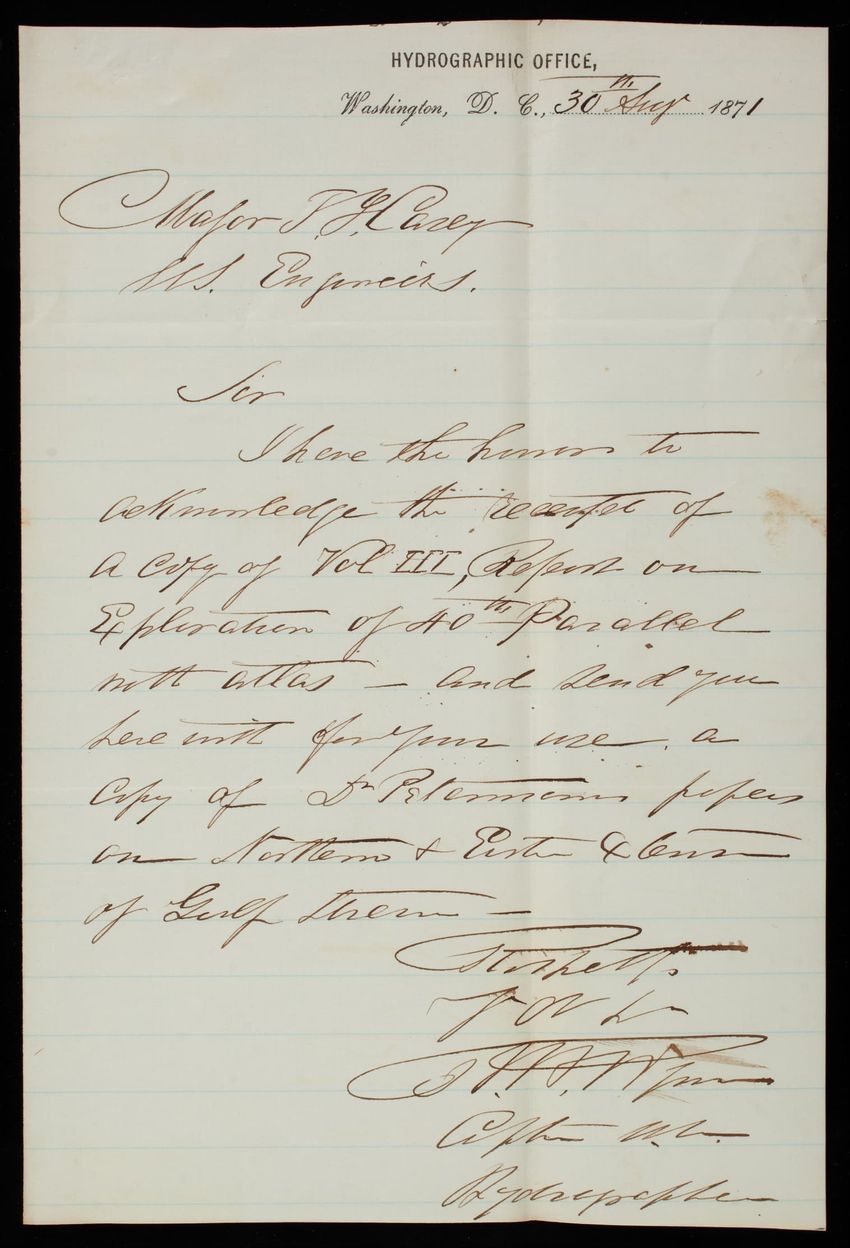 HYDROGRAPHIC OFFICE,
Washington, D. C., 30th Aug 1871
Major T. L. Casey
U.S. Engineers.
Sir
I have the honor to
acknowledge the receipt of
a copy of Vol III, Report on
Exploration of 40th Parallel
with atlas — and send you
herewith for your use a
copy of Dr Petermanns papers
on Northern & Eastn Extension
of Gulf Stream —
Respectfly
Yr Ob Sr
R. H. Wyman
Captn U.S.N.
Hydrographer